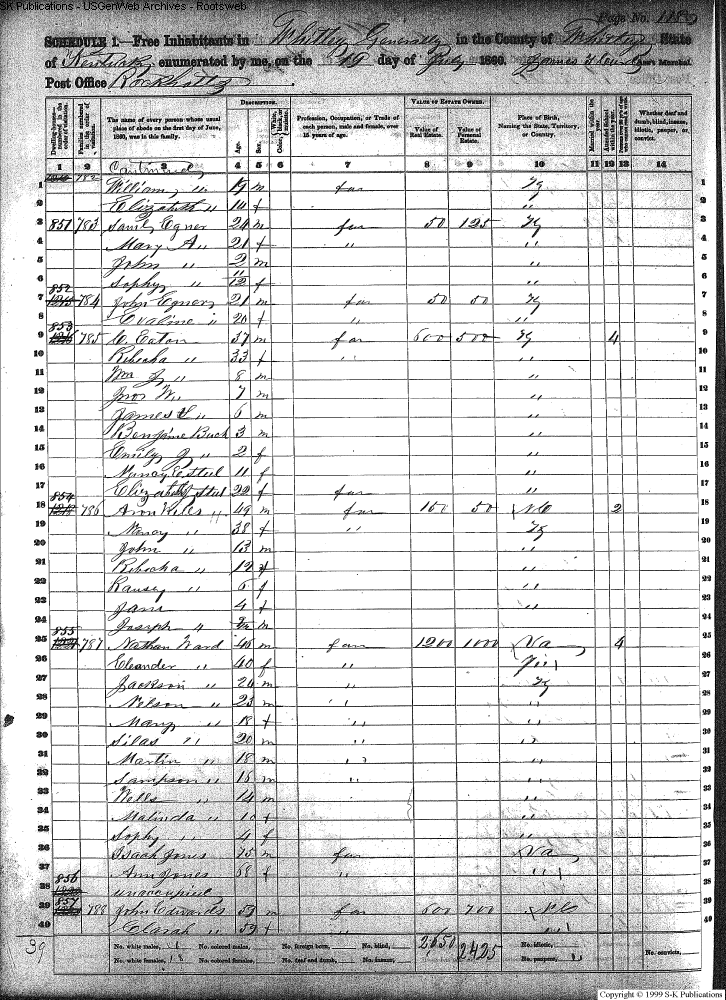 SK Publications - USGenWeb Archives - Rootsweb
Page No. 118
SCHEDULE 1.—Free Inhabitants in Whitley Generally in the County of Whitley State
of Kentucky enumerated by me, on the 19 day of July 1860. Ass't Marshal.
Post Office Rockholds
Dwelling-houses— numbered in the order of visitation.
Families numbered in the order of visitation.
The name of every person whose usual place of abode on the first day of June, 1860, was in this family.
DESCRIPTION.
Age.
Sex.
Color, White, black, or mulatto.
Profession, Occupation, or Trade of each person, male and female, over 15 years of age.
VALUE OF ESTATE OWNED.
Value of Real Estate.
Value of Personal Estate.
Place of Birth, Naming the State, Territory, or Country.
Married within the year.
Attended School within the year.
Whether deaf and dumb, blind, insane, idiotic, pauper, or convict.
1 2 3 4 5 6 7 8 9 10 11 12 13 14
782 Continued
1 William " 19 m far Ky 1
2 Elizabeth " 14 f " 2
3 851 783 Saml Egner 24 m far 50 125 Ky 3
4 Mary A " 21 f " " 4
5 John " 2 m " 5
6 Sophy " 11/12 f " 6
7 852 784 John Egner 21 m far 50 50 Ky 7
8 Evaline " 20 f " " 8
9 853 785 C. Eaton 37 m far 600 500 Ky 4 9
10 Rebecka " 33 f " " 10
11 Wm J " 8 m " 11
12 Jno W " 7 m " 12
13 James " 6 m " 13
14 Benjamine Buck 3 m " 14
15 Emily J " 2 f " 15
16 Nancy E Stul 11 f " 16
17 Elizabeth Stul 22 f far " 17
18 854 786 Aron 49 m far 150 50 NC 2 18
19 Nancy " 38 f " Ky 19
20 John " 13 m " 20
21 Rebecka " 12 f " 21
22 " 6 f " 22
23 Jane 4 f " 23
24 Joseph " m 24
25 855 787 Nathan Ward 46 m far 1200 1000 Va 4 25
26 Eleander " 40 f " 26
27 Jackson " 26 m " Ky 27
28 Nelson " 23 m " " 28
29 Mary " 18 f " " 29
30 Silas " 20 m " " 30
31 Martin " 18 m " " 31
32 Sampson " 16 m " " 32
33 Wells " 14 m " 33
34 Malinda " 10 f " 34
35 Sophy " 4 f " 35
36 Isaah Jones 75 m far Va 36
37 Ann Jones 68 f " " 37
38 856 unoccupied 38
39 857 788 John Edwards 59 m far 600 700 NC 39
40 Clarah " 59 f " " 40
39
No. white males, No. colored males, No. foreign born, No. blind, 2650 2425 No. idiotic, No. convicts,
No. white females, 18 No. colored females, No. deaf and dumb, No. insane, No. paupers,
Copyright © 1999 S-K Publications